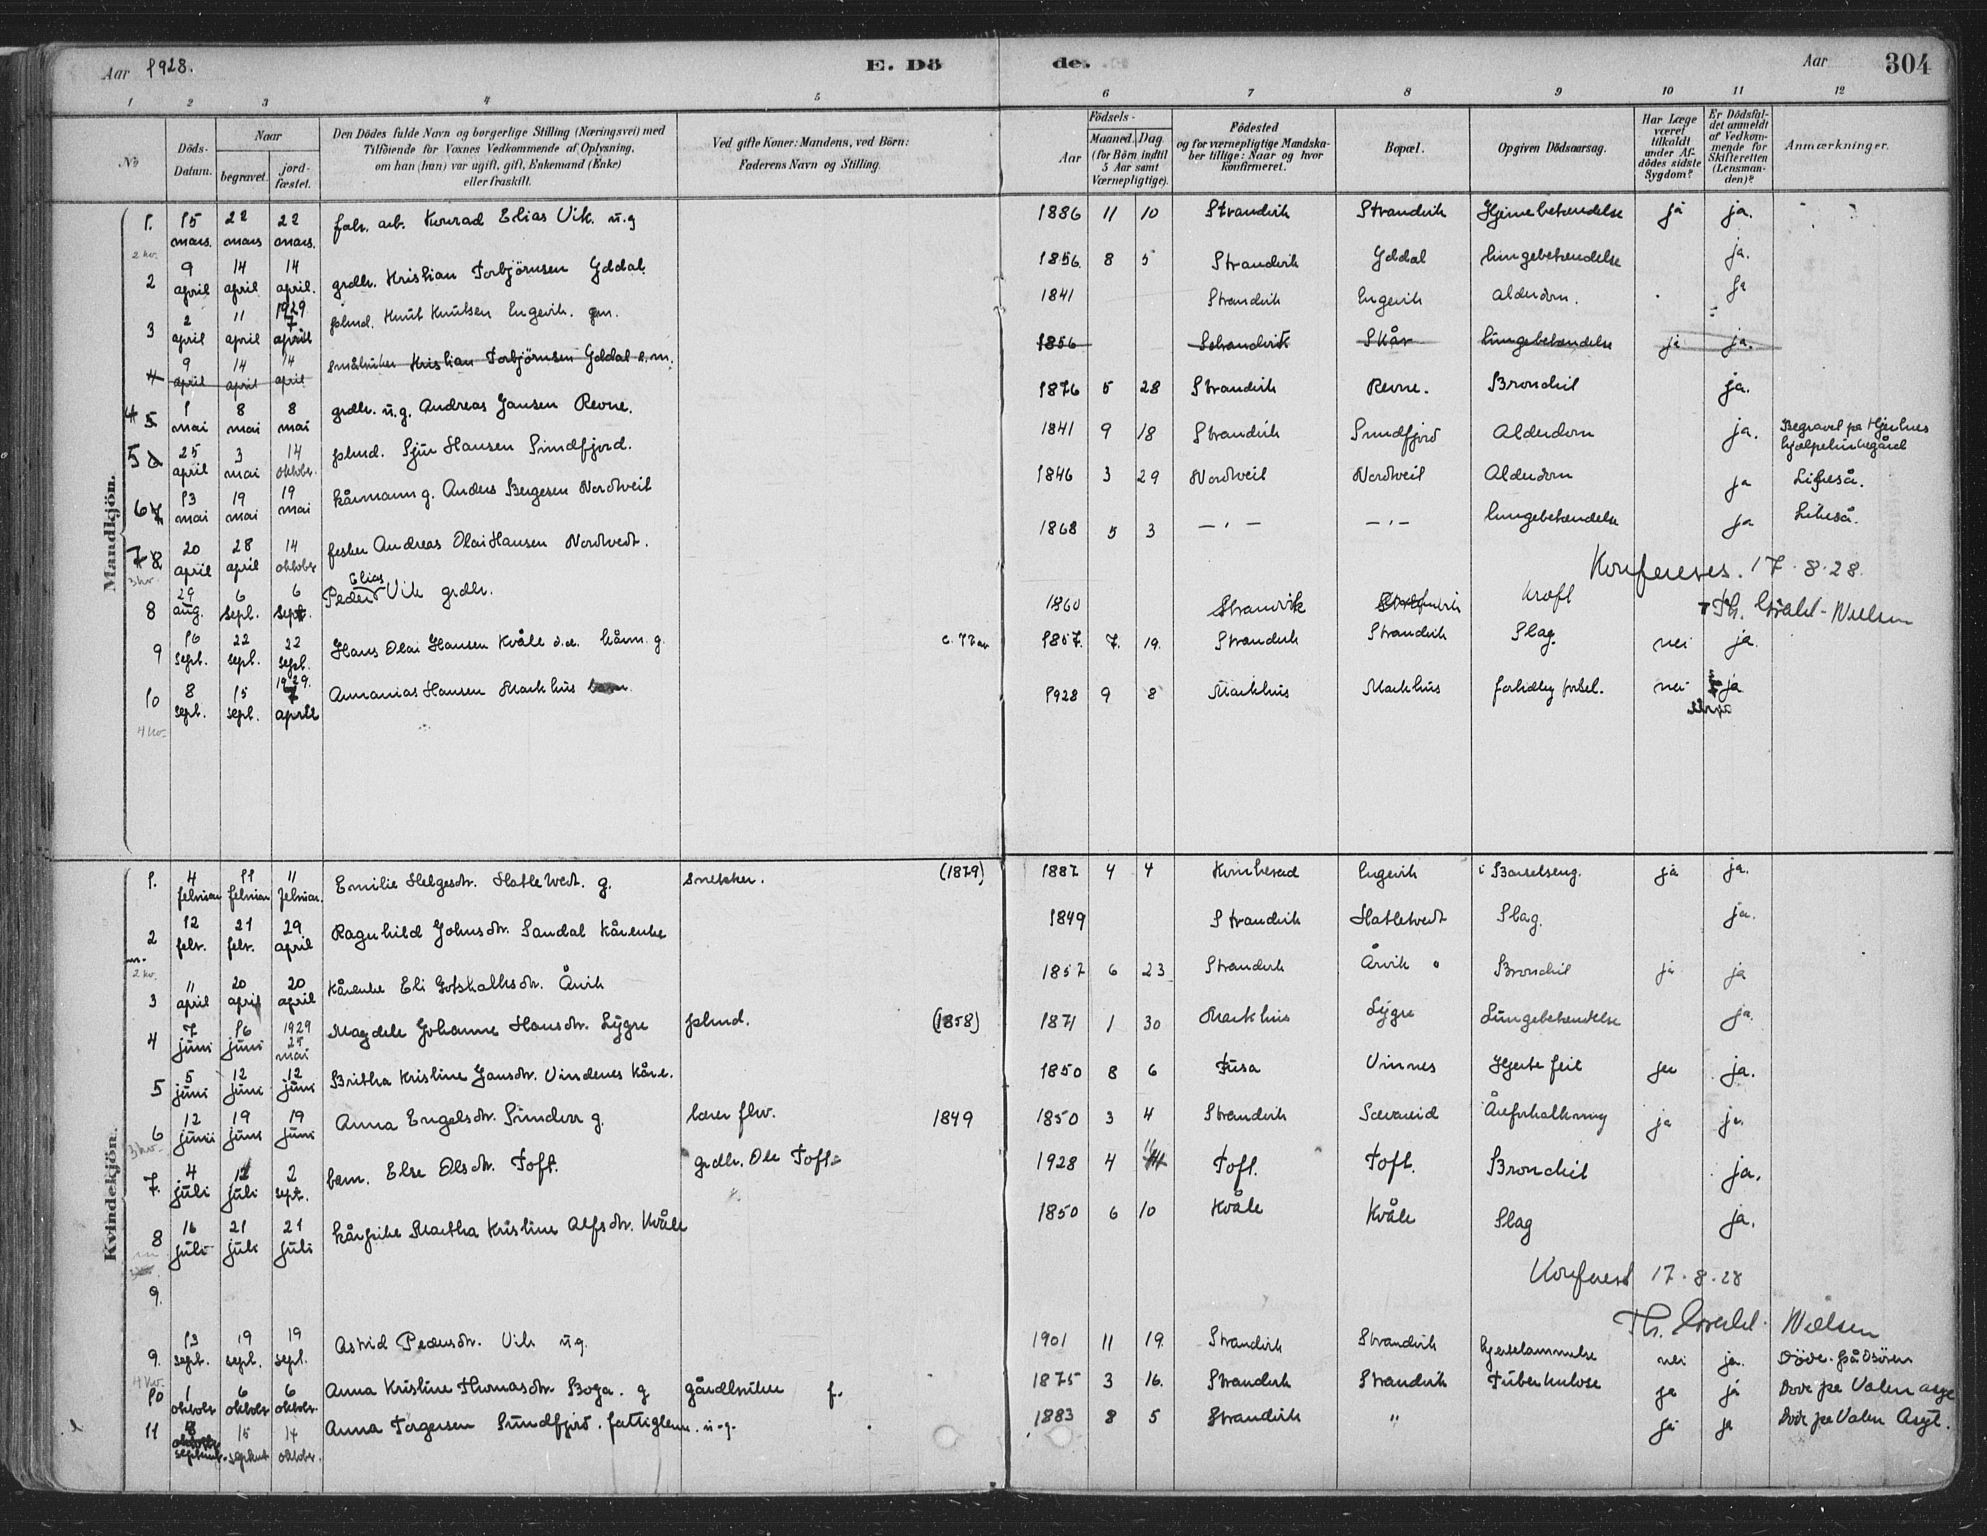 Aar 1928. E. Dö de. Aar 304
1 2 3 4 5 6 7 8 9 10 11 12
No
Döds-Datum.
Naar
begravet.
jord-fæstet.
Den Dödes fulde Navn og borgerlige Stilling (Næringsvei) med
Tilföiende for Voxnes Vedkommende af Oplysning,
om han (hun) var ugift, gift, Enkemand (Enke)
eller fraskilt.
Ved gifte Koner: Mandens, ved Börn:
Faderens Navn og Stilling.
Födsels-
Aar
Maaned. Dag.
(for Börn indtil
5 Aar samt
Værnepligtige).
Födested
og for værnepligtige Mandska-
ber tillige: Naar og hvor
konfirmeret.
Bopæl.
Opgiven Dödsaarsag.
Har Læge
været
tilkaldt
under Af-
dödes sidste
Sygdom?
Er Dödsfal-
det anmeldt
af Vedkom-
mende for
Skifteretten
(Lensman-
den)?
Anmærkninger.
Mandkjön.
1. 15 mars. 22 mars 22 mars. fabr. arb. Konrad Elias Vik. u.g 1886 11 10 Strandvik Strandvik Hjernebetændelse ja ja.
2 9 april 14 april 14 april. grdbr. Kristian Torbjörnsen Gddal. 1856. 8 5 Strandvik Gddal lungebetændelse ja.
3 2 april 11 april 1929 7 april Knut Knutsen Engevik. 1841 Strandvik Engevik alderdom. ja
4 9 april 14 april 14 april småbruker Kristian Torbjörnsen Gddal e.m. 1856 Strandvik Skår lungebetændelse ja ja.
4 5 1 mai 8 mai 8 mai grdbr. u.g. Andreas Jansen Revne. 1876 5 28 Strandvik Revne. Bronchit ja.
5 25 april 3 mai 14 oktober. Sjur Hansen Sundfjord. 1841 9 18 Strandvik Sundfjord Alderdom ja. Begravet på
6 7 13 mai 19 mai 19 mai kårmann g. Anders Bergesen Nordtveit 1846 3 29 Nordtveit Nordtveit Alderdom ja
7 8 20 april 28 april 14 oktober fisker Andreas Olai Hansen Nordtvedt. 1868 5 3 –"– –"– lungebetændelse ja
Konfereres. 17.8.28.
8 29 aug. 6 sept. 6 sept. Peder Elias Vik grdbr. 1860 Strandvik Strandvik Kræft Th. Nielsen
9 16 sept. 22 sept. 22 sept. Hans Olai Hansen Kvåle kårm. g. 1857. 7. 19. Strandvik Strandvik Slag. nei ja.
10 8 sept. 15 sept. 1929. 7 april Annanias Hansen Markhus barn. 1928 9 8 Markhus Markhus nei ja
Kvindekjön.
1. 4 februar 11 februar 11 februar. Emilie Helgesdtr. Hatletvedt. g. snekker. (1879) 1887 4 4 Kvinherad Engevik i Barselseng. ja ja.
2 12 febr. 21 febr. 29 april Ragnhild Johnsdtr. Sandal kårenke 1849 Strandvik Hatletvedt Slag. ja.
3 11 april 20 april 20 april kårenke Eli Gotskalksdtr. Årvik 1857 6 23 Strandvik Årvik Bronchit ja ja
4 7 juni 16 juni 1929 25 mai Magdele Johanne Hansdtr. Lygre (1858) 1871 1 30 Markhus Lygre Lungebetændelse ja.
5 5 juni 12 juni 12 juni Britha Kristine Jansdtr. Vindenes kåre. 1850 8 6 Fusa Vinnes Hjerte feil ja ja.
6 12 juni 19 juni 19 juni Anna Engelsdtr. Sundvor g. 1849 1850 3 4 Strandvik Sævareid Åreforkalkning ja ja.
7. 4 juli 12 juli 2 sept. barn. Else Olsdtr. Toft. grdbr. Ole Toft 1928 4 11 Toft. Toft. Bronchit ja.
8 16 juli 21 juli 21 juli Martha Kristine Alfsdtr. Kvåle 1850 6 10 Kvåle Kvåle Slag ja.
Konferert 17.8.28
9.
Th. Nielsen
9. 13 sept. 19 sept. 19 sept. Astrid Pedersdtr. Vik ug. 1901 11 19. Strandvik Strandvik hjertelammelse nei ja.
10 1 oktober 6 oktober 6 oktober Anna Kristine Thomasdtr Boga. g gårdbruker f. 1875 3 16. Strandvik Strandvik Tuberkulose ja ja Döde på Valen
11 8 september 15 septbr 14 oktober. Anna Torgersen Sundfjord. fattiglem. u.g. 1883 8 5 Strandvik " ja ja Döde på Valen Asyl.